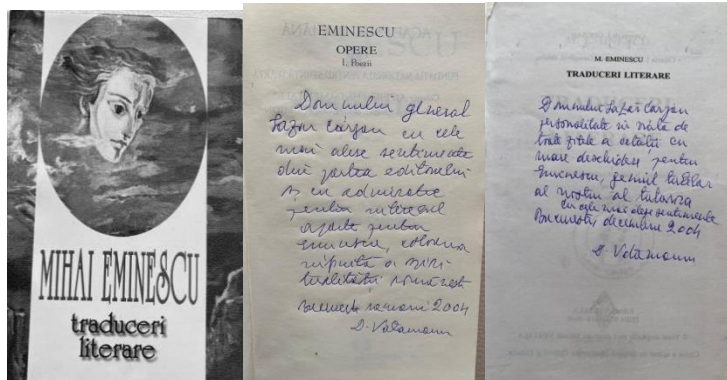 MIHAI EMINESCU
traduceri
literare
EMINESCU
OPERE
I. Poezii
Domnului general
Lazăr Cârjan cu cele
mai alese sentimente
din partea editorului
și cu admirație
pentru
pentru
Eminescu, coloana
a
București ianuarie 2004
D. Vatamaniuc
M. EMINESCU
TRADUCERI LITERARE
Domnului Lazăr Cârjan
personalitate în viața de
toate zilele a cetății cu
mare deschidere pentru
Eminescu, geniul tutelar
al nostru al tuturor
cu cele mai alese sentimente
București, decembrie 2004
D. Vatamaniuc